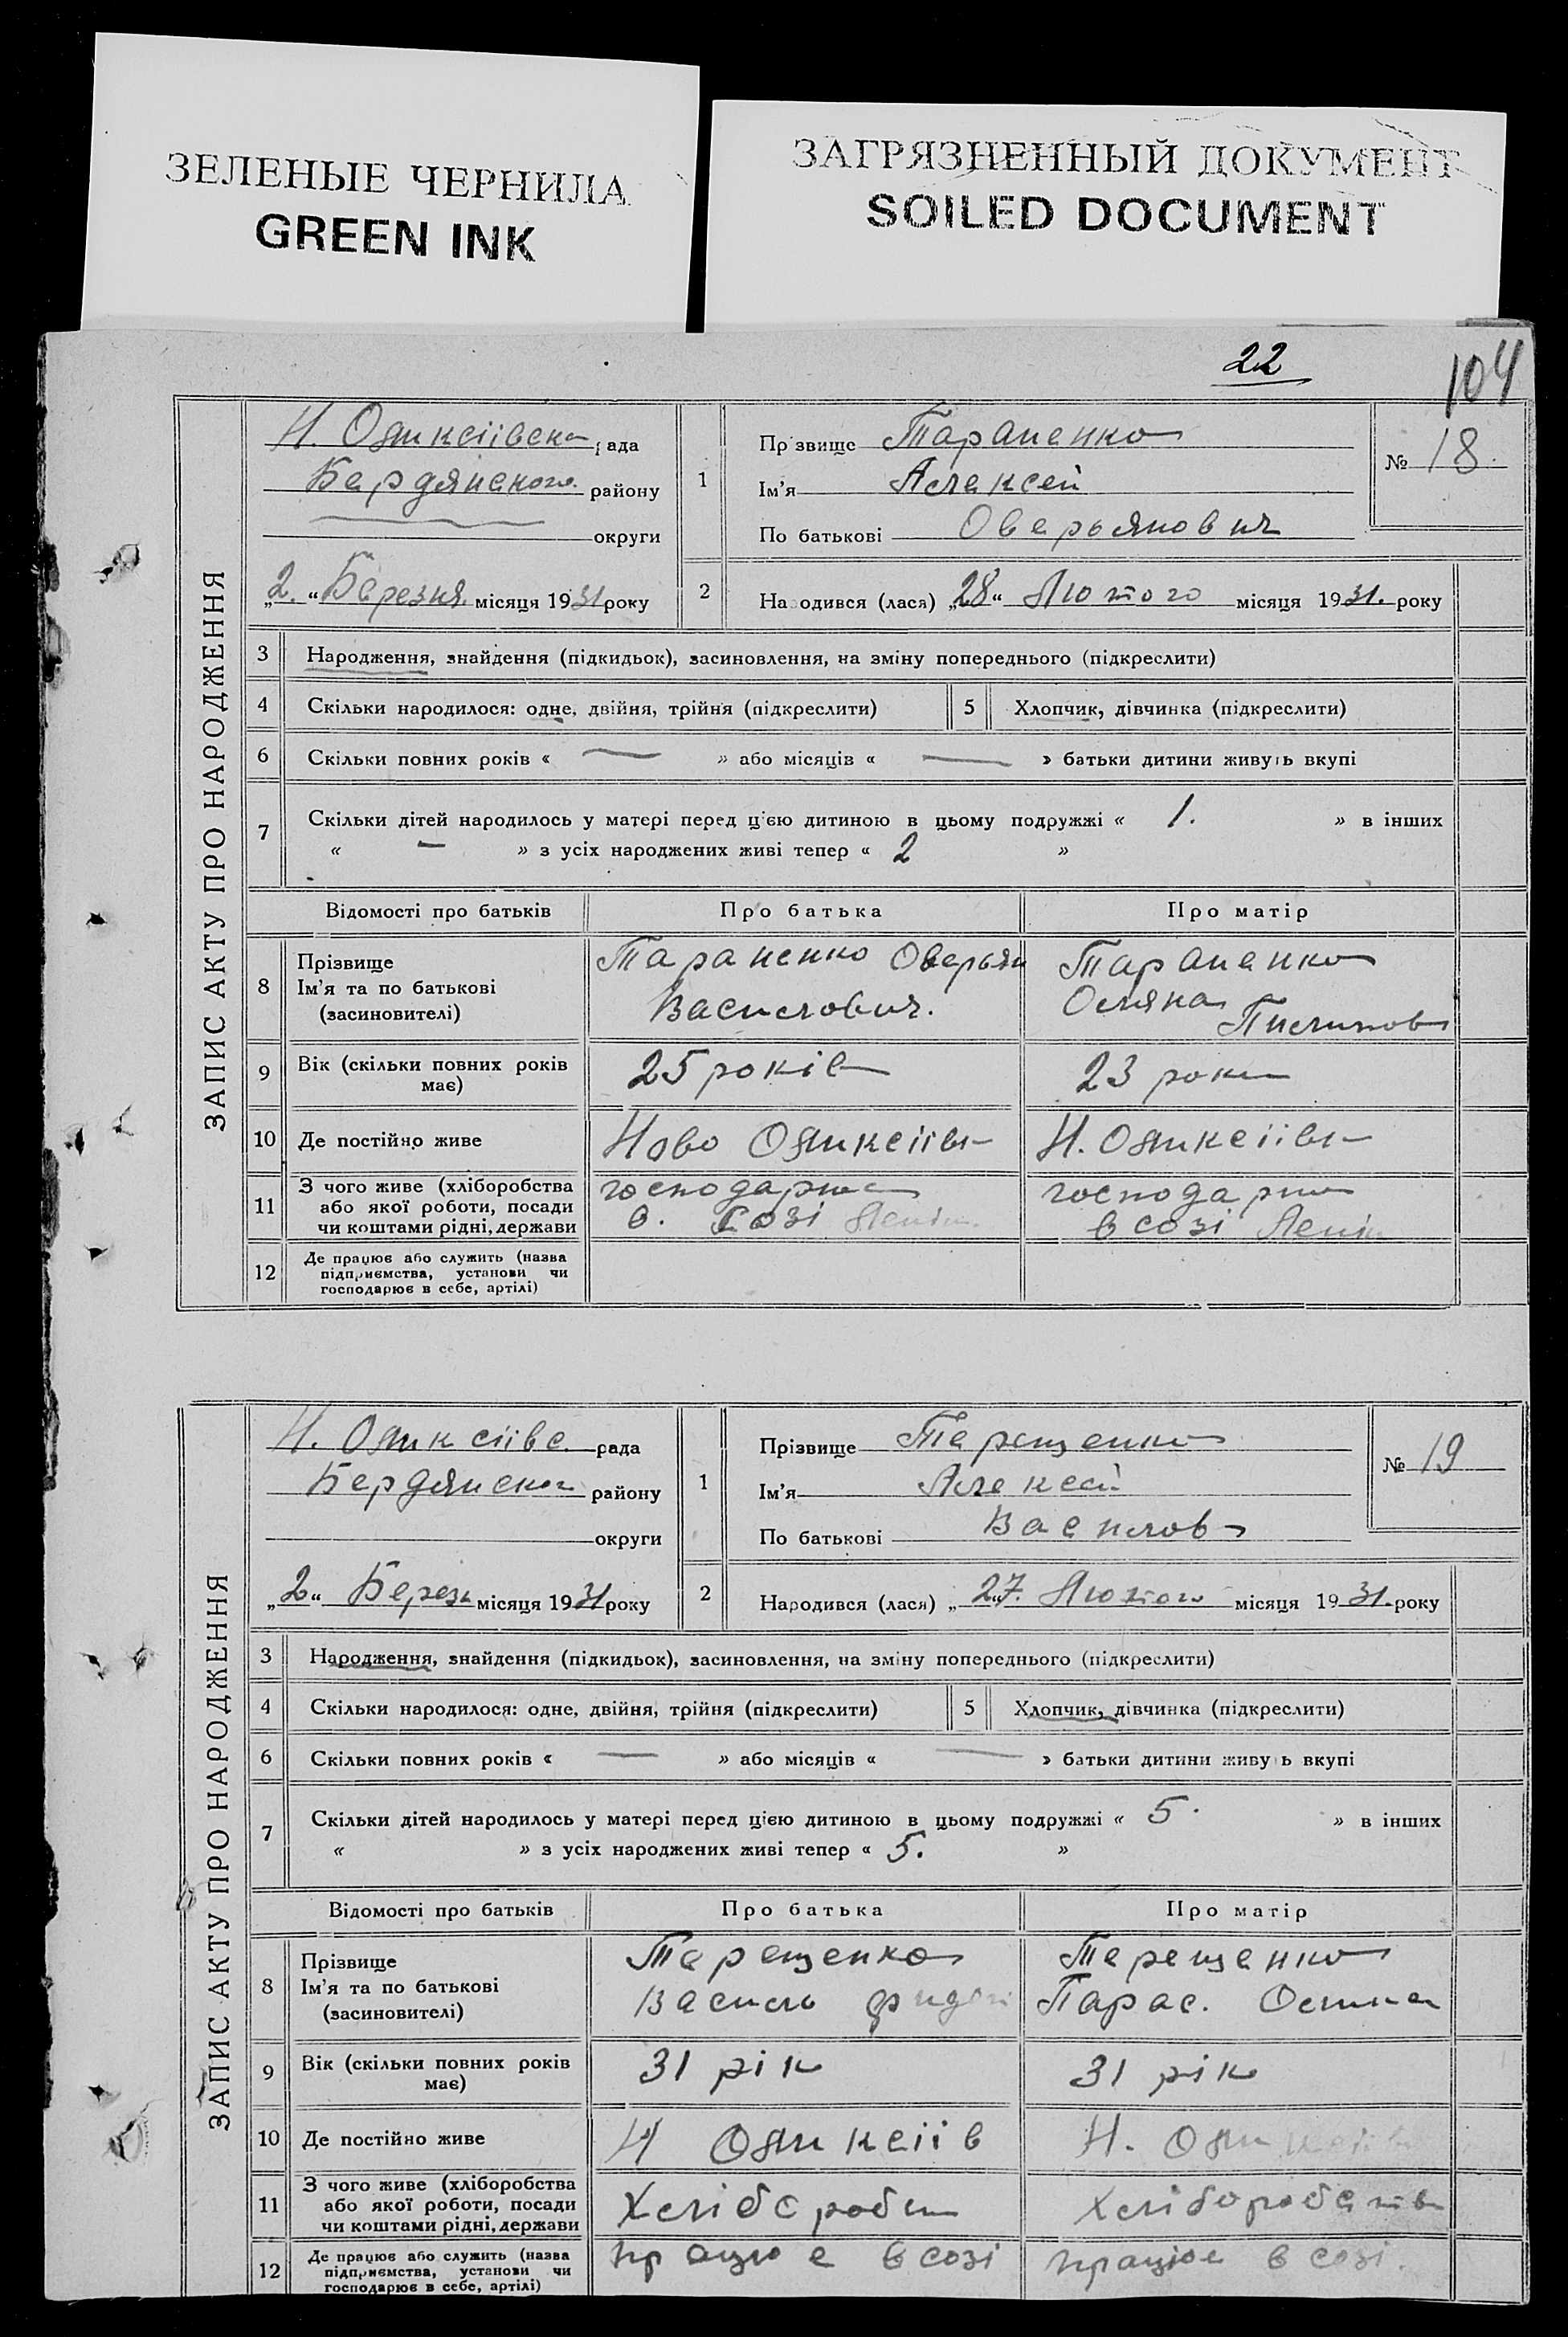 ЗЕЛЕНЫЕ ЧЕРНИЛА
GREEN INK
ЗАГРЯЗНЕННЫЙ ДОКУМЕНТ
SOILED DOCUMENT
22
104
ЗАПИС АКТУ ПРО НАРОДЖЕННЯ
рада
Бердянского району
округи
„2.“ Березня місяця 1931 року
1
Прізвище Тараненко
Ім'я Алексей
По батькові Оверьянович
№ 18.
2
Народився (лася) „28“ Лютого місяця 1931. року
3 Народження, знайдення (підкидьок), засиновлення, на зміну попереднього (підкреслити)
4 Скільки народилося: одне, двійня, трійня (підкреслити)
5 Хлопчик, дівчинка (підкреслити)
6 Скільки повних років « — » або місяців « — » батьки дитини живуть вкупі
7 Скільки дітей народилось у матері перед цією дитиною в цьому подружжі « 1. » в інших
« — » з усіх народжених живі тепер « 2 »
Відомості про батьків
Про батька
Про матір
8
Прізвище
Ім'я та по батькові
(засиновителі)
Тараненко Оверьян
Василович.
Тараненко
9
Вік (скільки повних років
має)
25 років
23 роки
10 Де постійно живе
Ново
Н.
11
З чого живе (хліборобства
або якої роботи, посади
чи коштами рідні, держави
в. созі Леніна
в созі Леніна
12
Де працює або служить (назва
підприємства, установи чи
господарює в себе, артілі)
ЗАПИС АКТУ ПРО НАРОДЖЕННЯ
рада
району
округи
„2“ місяця 1931 року
1
Прізвище Терещенко
Ім'я Алексей
По батькові
№ 19
2
Народився (лася) „27. Лютого місяця 1931. року
3 Народження, знайдення (підкидьок), засиновлення, на зміну попереднього (підкреслити)
4 Скільки народилося: одне, двійня, трійня (підкреслити)
5 Хлопчик, дівчинка (підкреслити)
6 Скільки повних років « — » або місяців « — » батьки дитини живуть вкупі
7 Скільки дітей народилось у матері перед цією дитиною в цьому подружжі « 5. » в інших
« » з усіх народжених живі тепер « 5. »
Відомості про батьків
Про батька
Про матір
8
Прізвище
Ім'я та по батькові
(засиновителі)
Терещенко
Василь
Терещенко
Парас.
9
Вік (скільки повних років
має)
31 рік
31 рік
10 Де постійно живе
Н
Н.
11
З чого живе (хліборобства
або якої роботи, посади
чи коштами рідні, держави
12
Де працює або служить (назва
підприємства, установи чи
господарює в себе, артілі)
працює в созі
працює в созі.